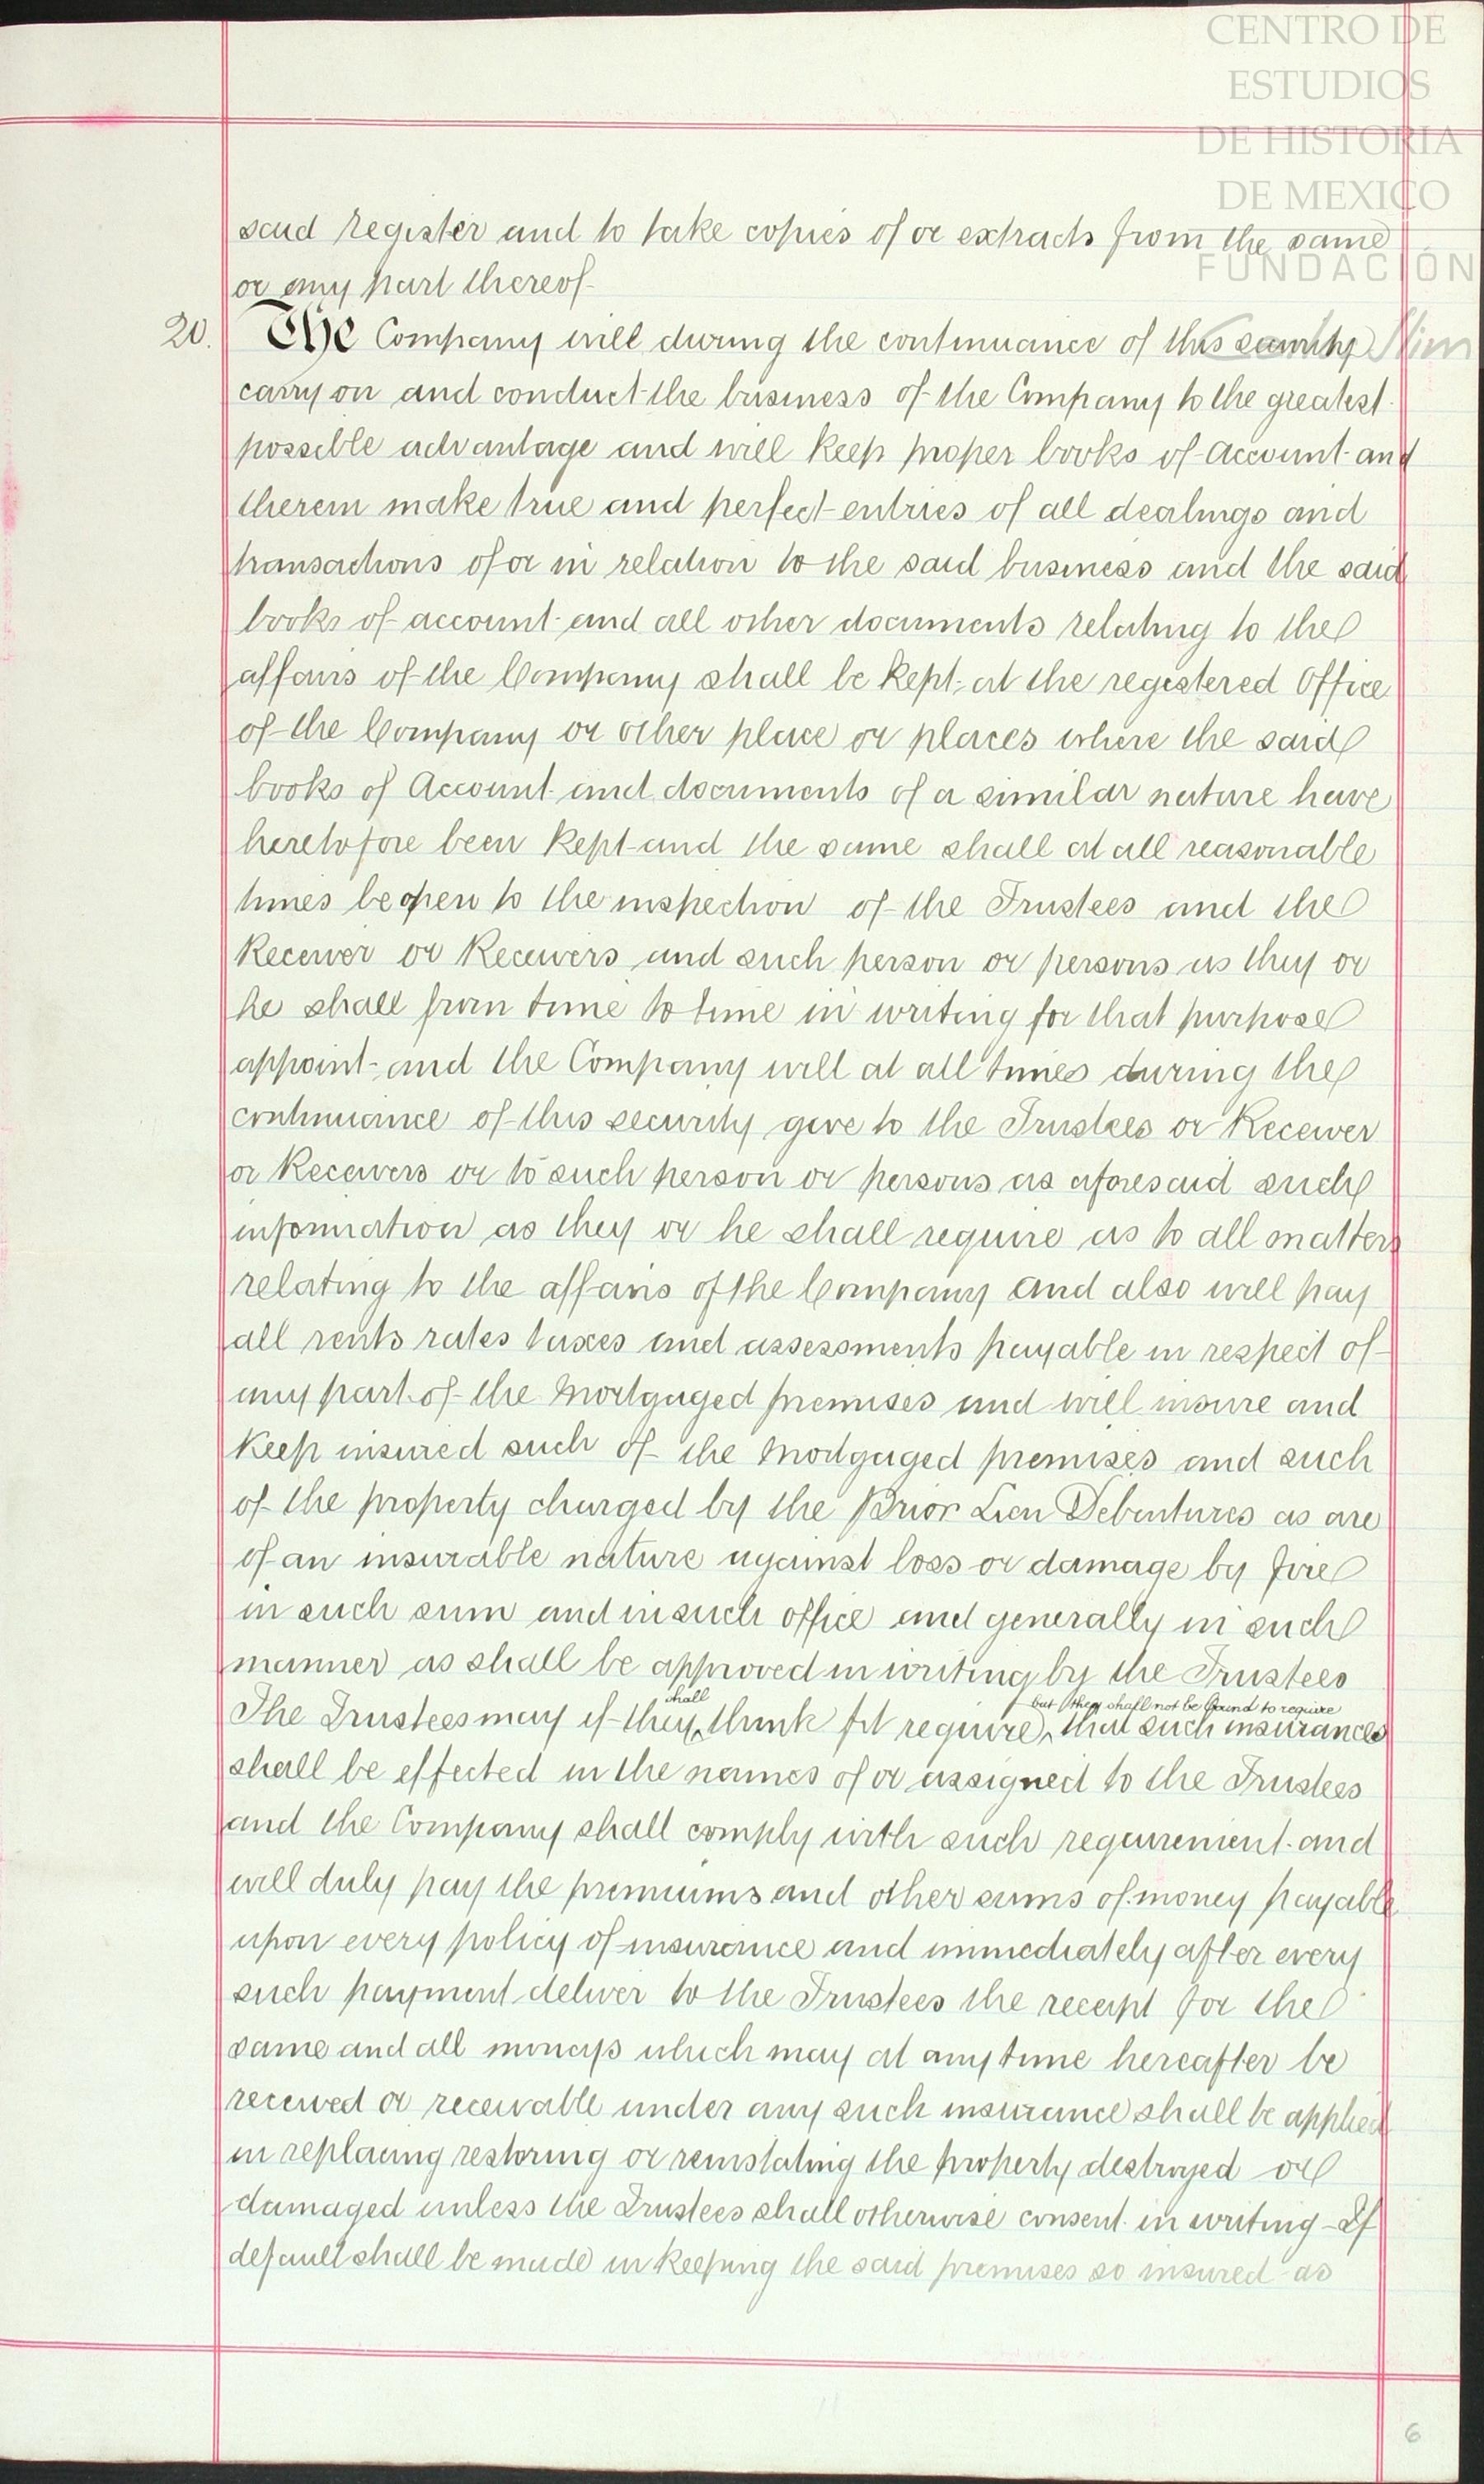 CENTRO DE
ESTUDIOS
DE HISTORIA
DE MEXICO
FUNDACIÓN
Carlos Slim
said register and to take copies of or extracts from the same
or any part thereof
20. The Company will during the continuance of this security
carry on and conduct the business of the Company to the greatest
possible advantage and will keep proper books of Account and
therein make true and perfect entries of all dealings and
transactions of or in relation to the said business and the said
books of account and all other documents relating to the
affairs of the Company shall be kept at the registered Office
of the Company or other place or places where the said
books of Account and documents of a similar nature have
heretofore been kept and the same shall at all reasonable
times be open to the inspection of the Trustees and the
Receiver or Receivers and such person or persons as they or
he shall from time to time in writing for that purpose
appoint and the Company will at all times during the
continuance of this security give to the Trustees or Receiver
or Receivers or to such person or persons as aforesaid such
information as they or he shall require as to all matters
relating to the affairs of the Company and also will pay
all rents rates taxes and assessments payable in respect of
any part of the Mortgaged premises and will insure and
keep insured such of the Mortgaged premises and such
of the property charged by the Prior Lien Debentures as are
of an insurable nature against loss or damage by fire
in such sum and in such office and generally in such
manner as shall be approved in writing by the Trustees
shall but they shall not be bound to require
The Trustees may if they think fit require that such insurances
shall be effected in the names of or assigned to the Trustees
and the Company shall comply with such requirement and
will duly pay the premiums and other sums of money payable
upon every policy of insurance and immediately after every
such payment deliver to the Trustees the receipt for the
same and all moneys which may at any time hereafter be
received or receivable under any such insurance shall be applied
in replacing restoring or reinstating the property destroyed or
damaged unless the Trustees shall otherwise consent in writing - If
default shall be made in keeping the said premises so insured as
6